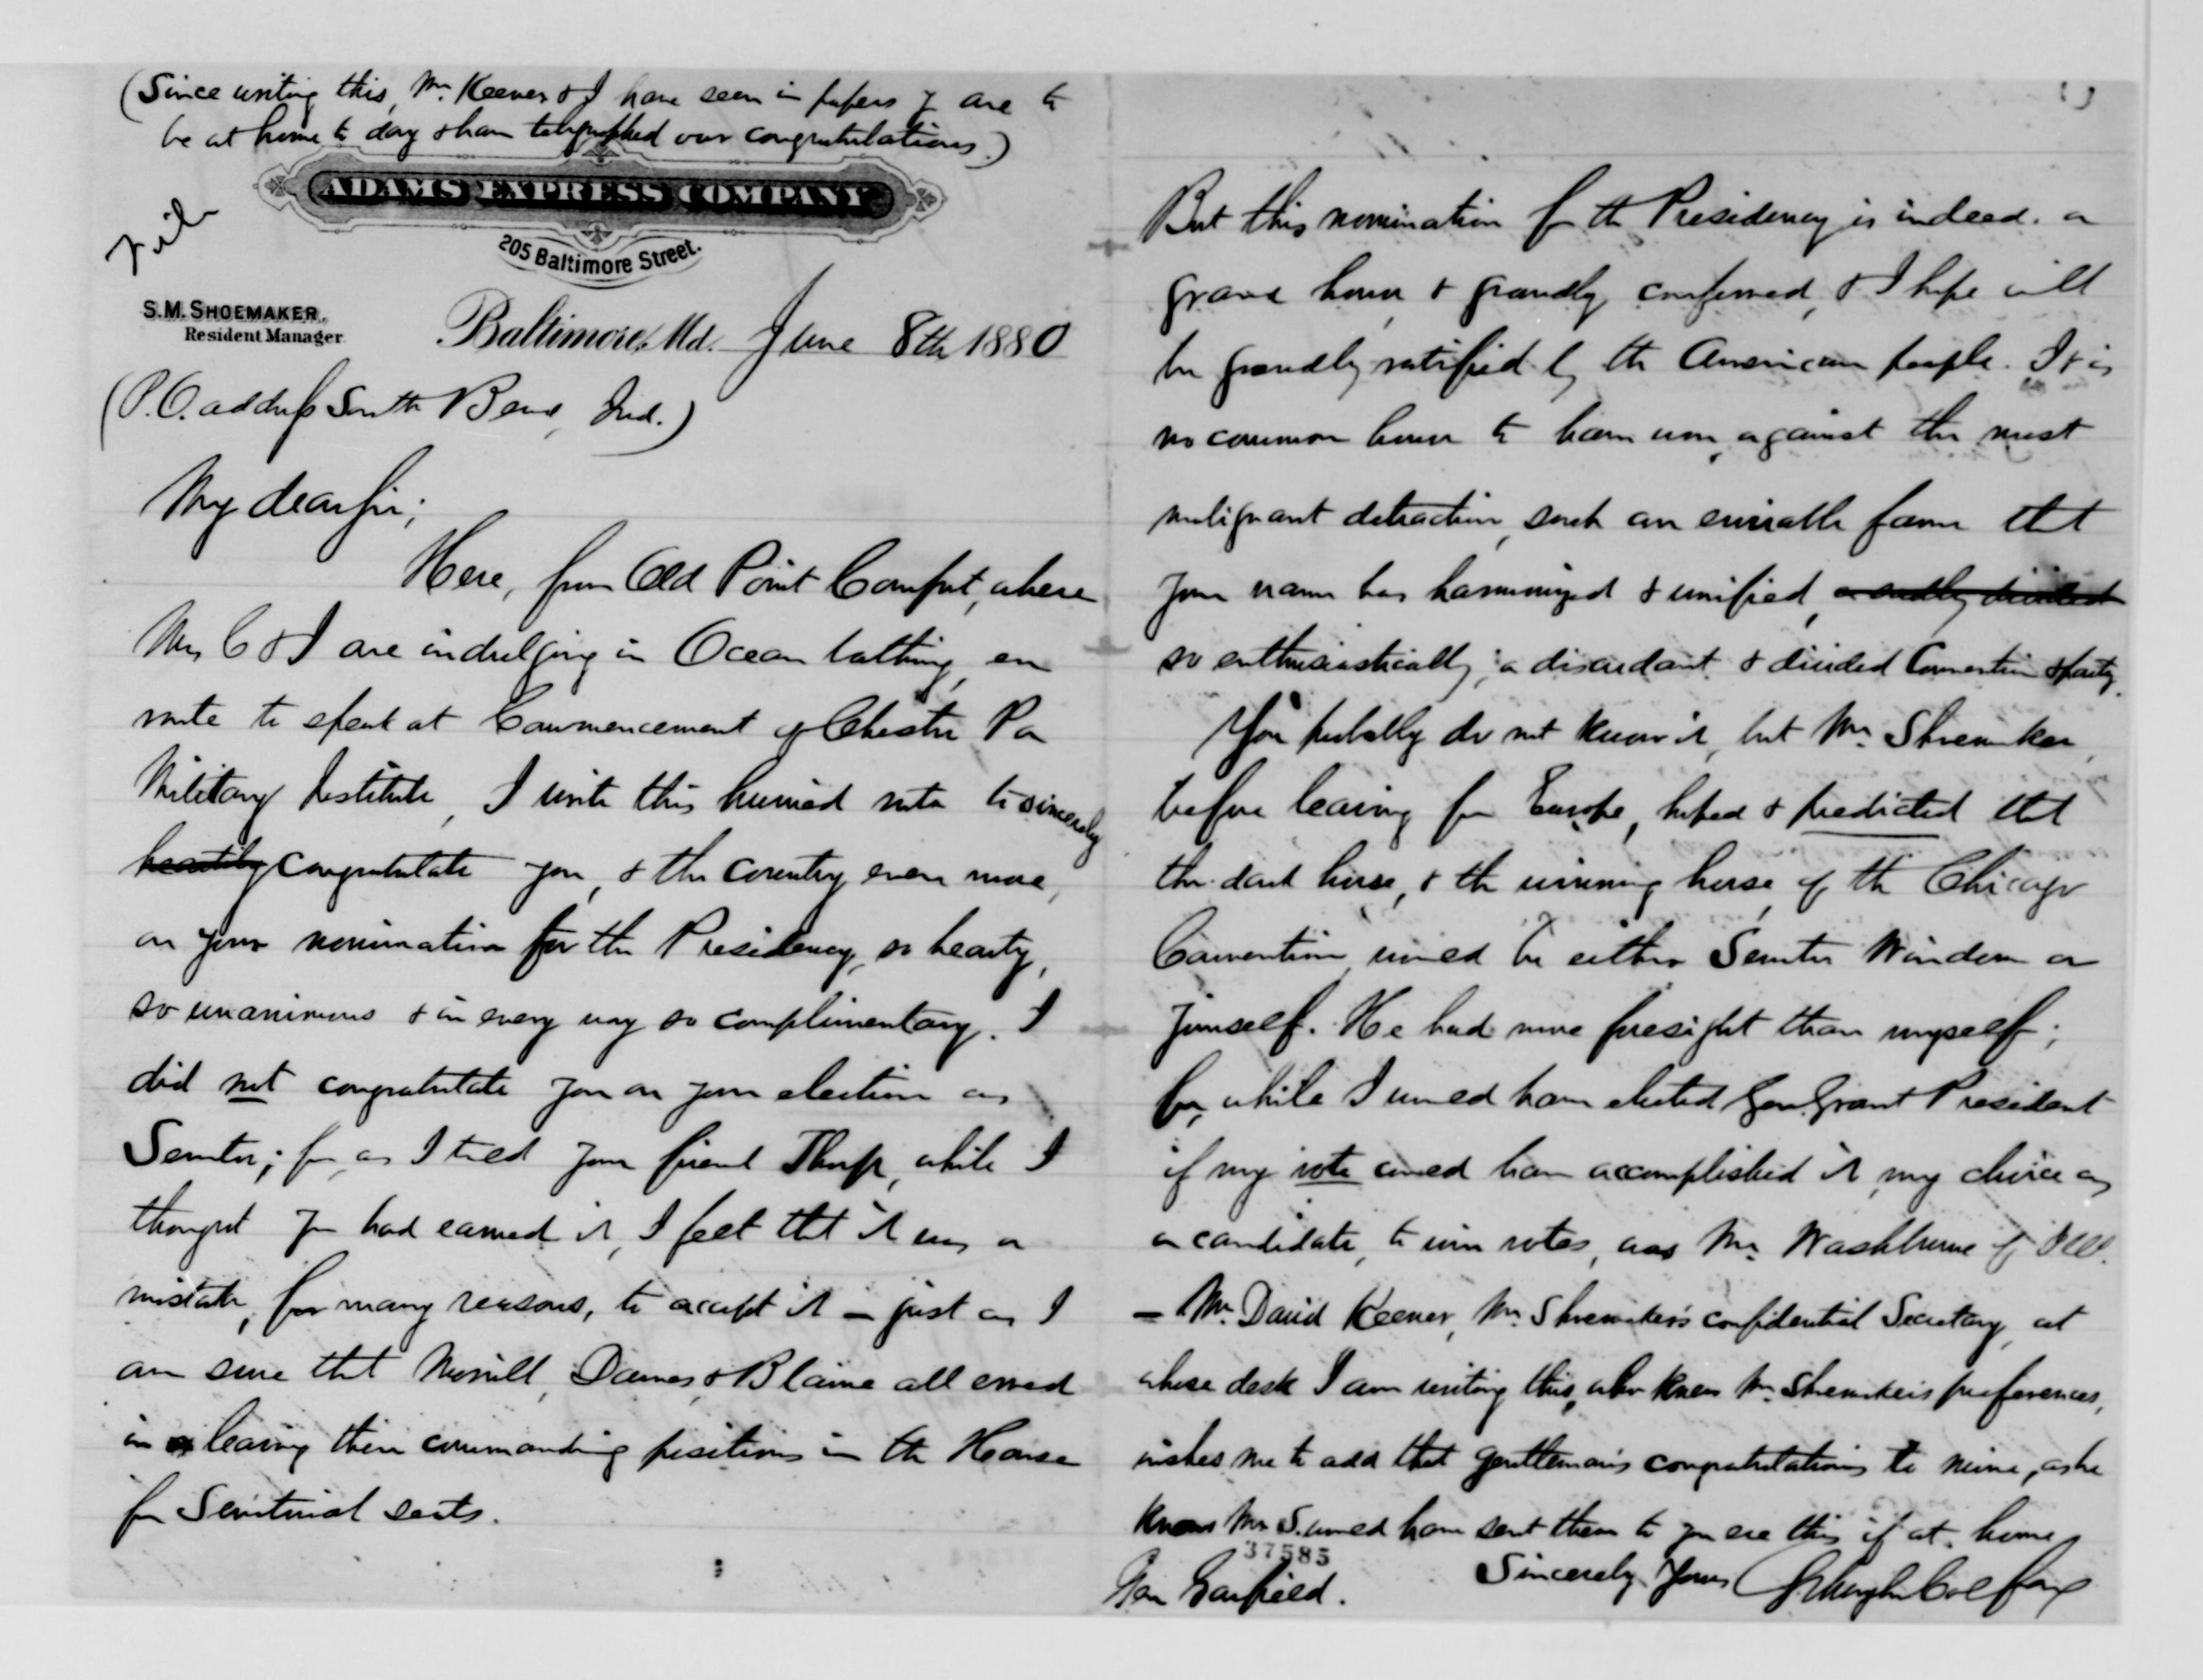 (Since writing this, Mr. Keener & I have seen in papers y are to
be at home to day & have telegraphed our congratulations.)
File
ADAMS EXPRESS COMPANY
205 Baltimore Street.
S.M. SHOEMAKER,
Resident Manager
Baltimore, Md. June 8th 1880
(P.O. address South Bend, Ind.)
My dear sir;
Here, from Old Point Comfort, where
Mrs C & I are indulging in Ocean bathing, en
route to speak at Commencement of Chester Pa
Military Institute, I write this hurried note to sincerely
heartily congratulate you, & the country even more,
on your nomination for the Presidency, so hearty,
so unanimous & in every way so complimentary. I
did not congratulate you on your election as
Senator; for, as I told your friend Thorp, while I
thought you had earned it, I felt tht it was a
mistake, for many reasons, to accept it – just as I
am sure tht Morrill, Dawes, & Blaine all erred
in leaving their commanding positions in the House
for Senatorial seats.
But this nomination for the Presidency is indeed a
grand honor, & grandly conferred, & I hope will
be grandly ratified by the American people. It is
no common honor to have won, against the most
malignant detraction, such an enviable fame tht
your name has harmonized & unified, a sadly divided
so enthusiastically, a discordant & divided Convention & party.
You probably do not know it, but Mr. Shoemaker,
before leaving for Europe, hoped & predicted tht
the dark horse, & the winning horse, of the Chicago
Convention would be either Senator Windom or
yourself. He had more foresight than myself;
for, while I would have elected Gen. Grant President
if my vote could have accomplished it, my choice as
a candidate, to win votes, was Mr. Washburne of Ill.
– Mr. David Keener, Mr. Shoemaker's confidential Secretary, at
whose desk I am writing this, who knew Mr. Shoemaker's preferences,
wishes me to add that gentleman's congratulations to mine, as he
knows Mr S. would have sent them to you ere this if at home.
37585
Sincerely Yours Schuyler Colfax
Gen Garfield.